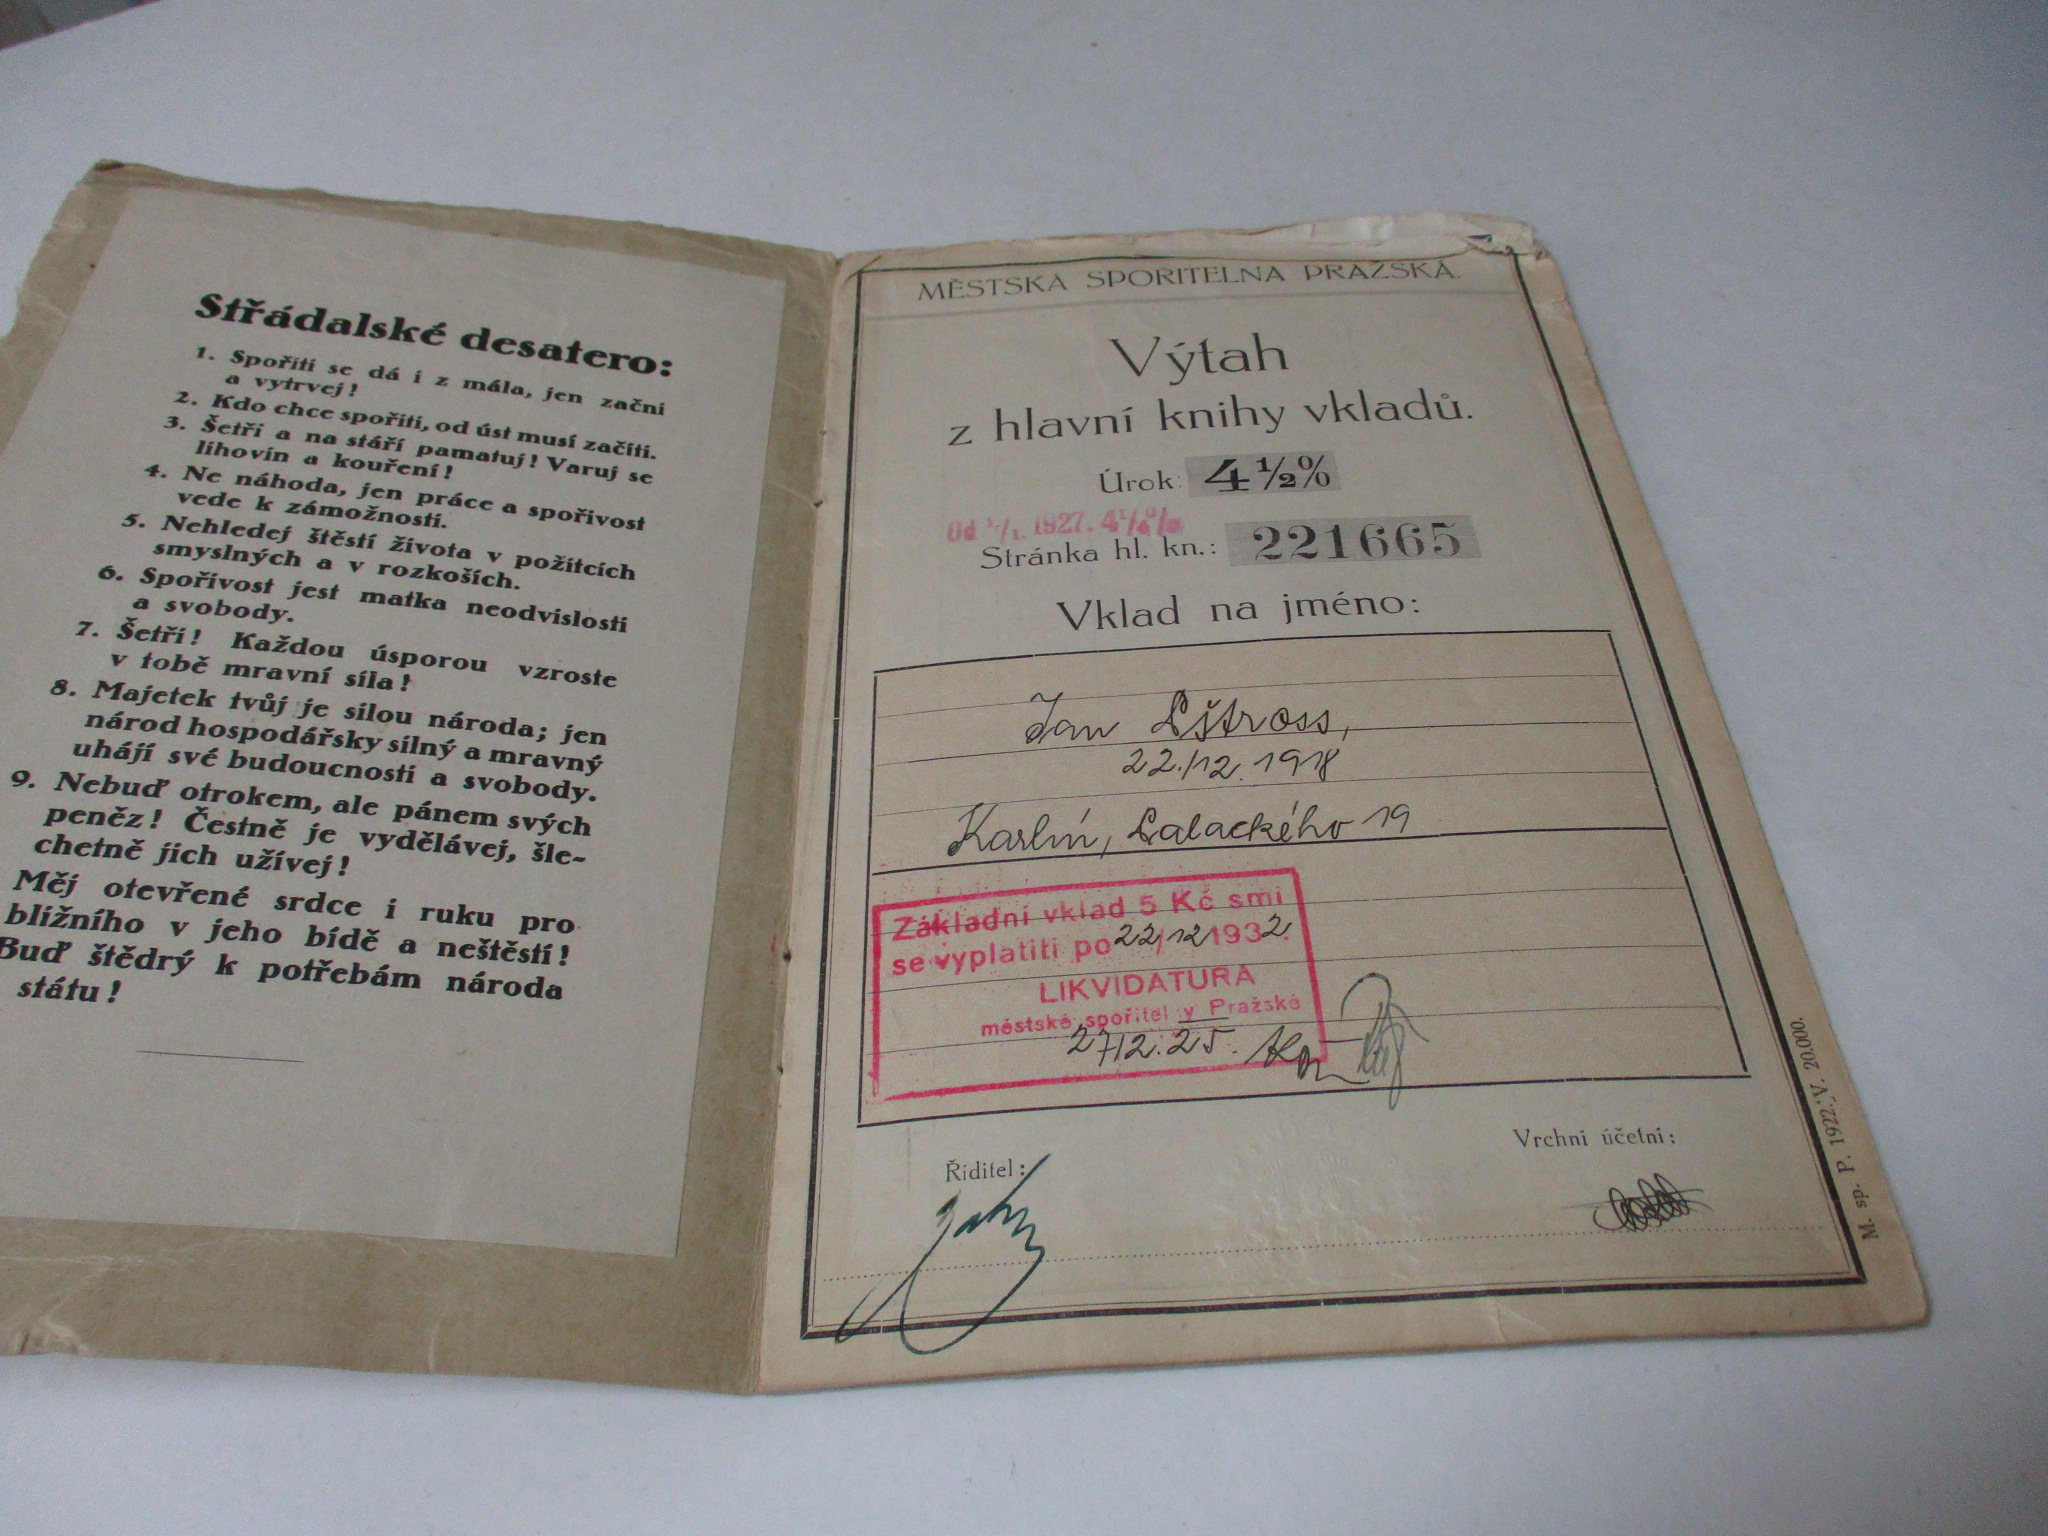 Střádalské desatero:
1. Spořiti se dá i z mála, jen začni
a vytrvej!
2. Kdo chce spořiti, od úst musí začíti.
3. Šetři a na stáří pamatuj! Varuj se
lihovin a kouření!
4. Ne náhoda, jen práce a spořivost
vede k zámožnosti.
5. Nehledej štěstí života v požitcích
smyslných a v rozkoších.
6. Spořivost jest matka neodvislosti
a svobody.
7. Šetři! Každou úsporou vzroste
v tobě mravní síla!
8. Majetek tvůj je silou národa; jen
národ hospodářsky silný a mravný
uhájí své budoucnosti a svobody.
9. Nebuď otrokem, ale pánem svých
peněz! Čestně je vydělávej, šle-
chetně jich užívej!
Měj otevřené srdce i ruku pro
bližního v jeho bídě a neštěstí!
Buď štědrý k potřebám národa
státu!
MĚSTSKÁ SPOŘITELNA PRAŽSKÁ.
Výtah
z hlavní knihy vkladů.
Úrok: 4½%
Od 1/1. 1927. 4¼%
Stránka hl. kn.: 221665
Vklad na jméno:
Jan Lštross,
22./12. 1918
Karlín, Palackého 19
Základní vklad 5 Kč smí
se vyplatiti po 22/12 1932.
LIKVIDATURA
městské spořitel y Pražské
27/12. 25.
Ředitel:
Vrchní účetní:
M. sp. P. 1922. V. 20.000.